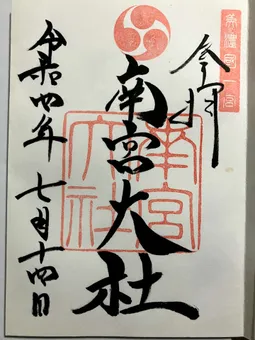 美濃國一宮
奉拝
南宮大社
南宮
大社
令和四年 七月十四日